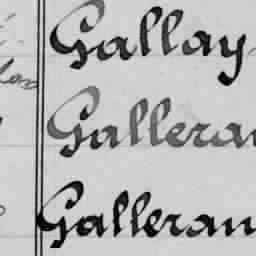 Gallay
Galleran
Galleran